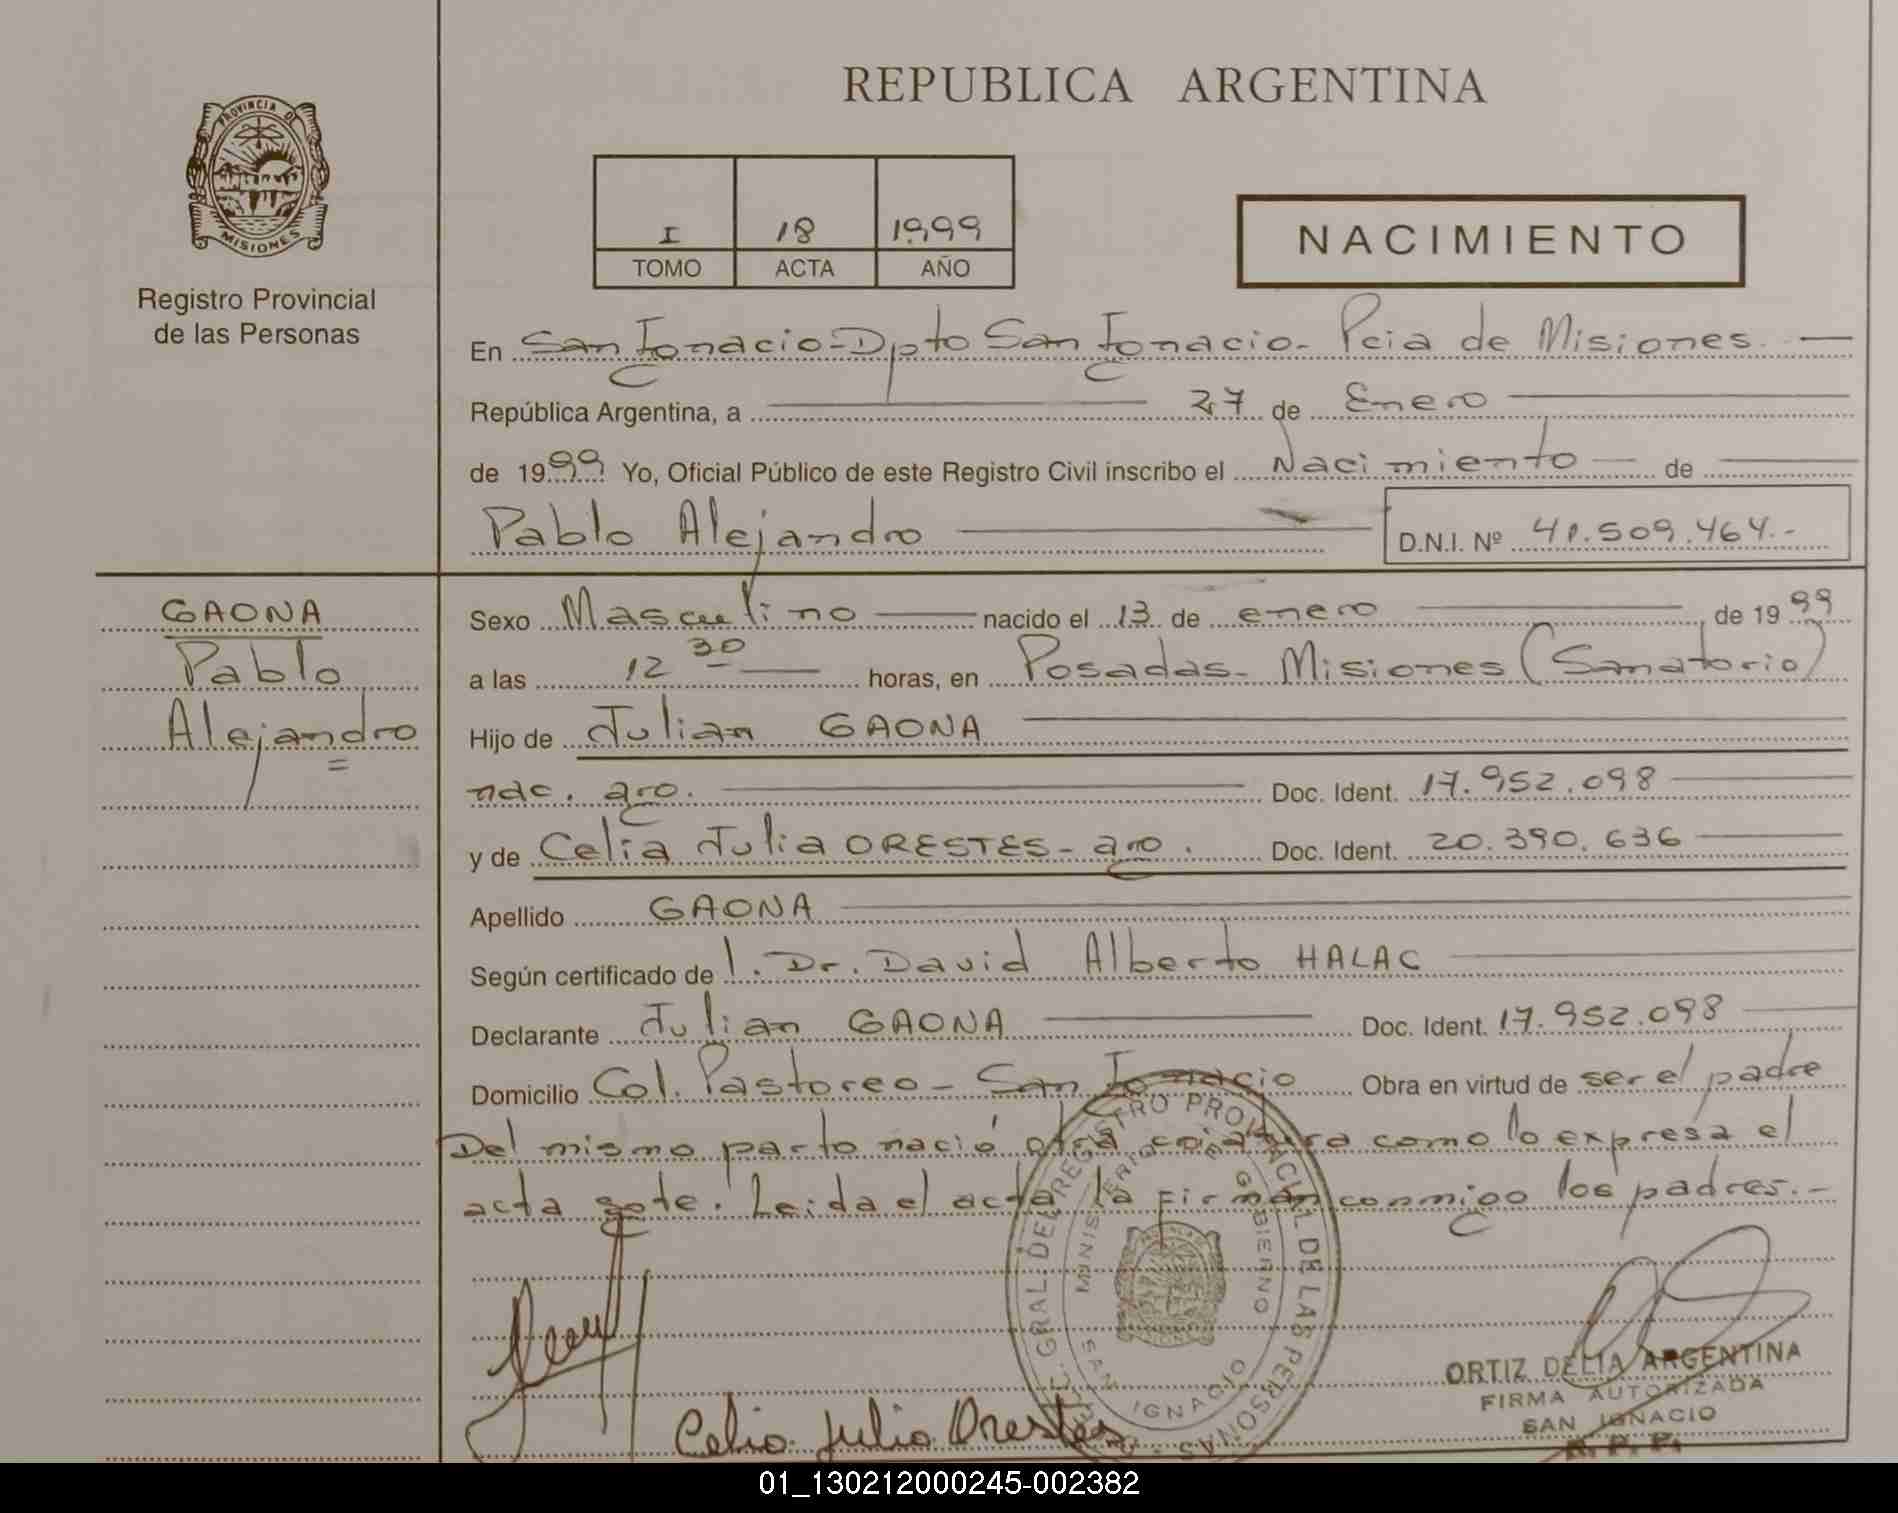 REPUBLICA ARGENTINA
PROVINCIA D
MISIONES
Registro Provincial
de las Personas
I 18 1999
TOMO ACTA AÑO
NACIMIENTO
En San Ignacio-Dpto San Ignacio- Pcia de Misiones. —
República Argentina, a — 27 de Enero —
de 1999 Yo, Oficial Público de este Registro Civil inscribo el Nacimiento — de —
Pablo Alejandro —
D.N.I. Nº 41.509.464.-
GAONA
Pablo
Alejandro
Sexo Masculino — nacido el 13 de enero — de 1999
a las 12 30 — horas, en Posadas- Misiones (Sanatorio)
Hijo de Julian GAONA —
nac. arg. — Doc. Ident. 17.952.098 —
y de Celia Julia ORESTES- arg. Doc. Ident. 20.390.636 —
Apellido GAONA —
Según certificado de l. Dr. David Alberto HALAC —
Declarante Julian GAONA — Doc. Ident. 17.952.098 —
Domicilio Col. Pastoreo- San Ignacio Obra en virtud de ser el padre
Del mismo parto nació otra criatura como lo expresa el
acta sgte. Leida el acta la firman conmigo los padres.-
GRAL. DEL REGISTRO PROVINCIAL DE LAS PERSONAS
MINISTERIO DE GOBIERNO
SAN IGNACIO
Celia Julia Orestes
ORTIZ DELIA ARGENTINA
FIRMA AUTORIZADA
SAN IGNACIO
R. P. P.
01_130212000245-002382